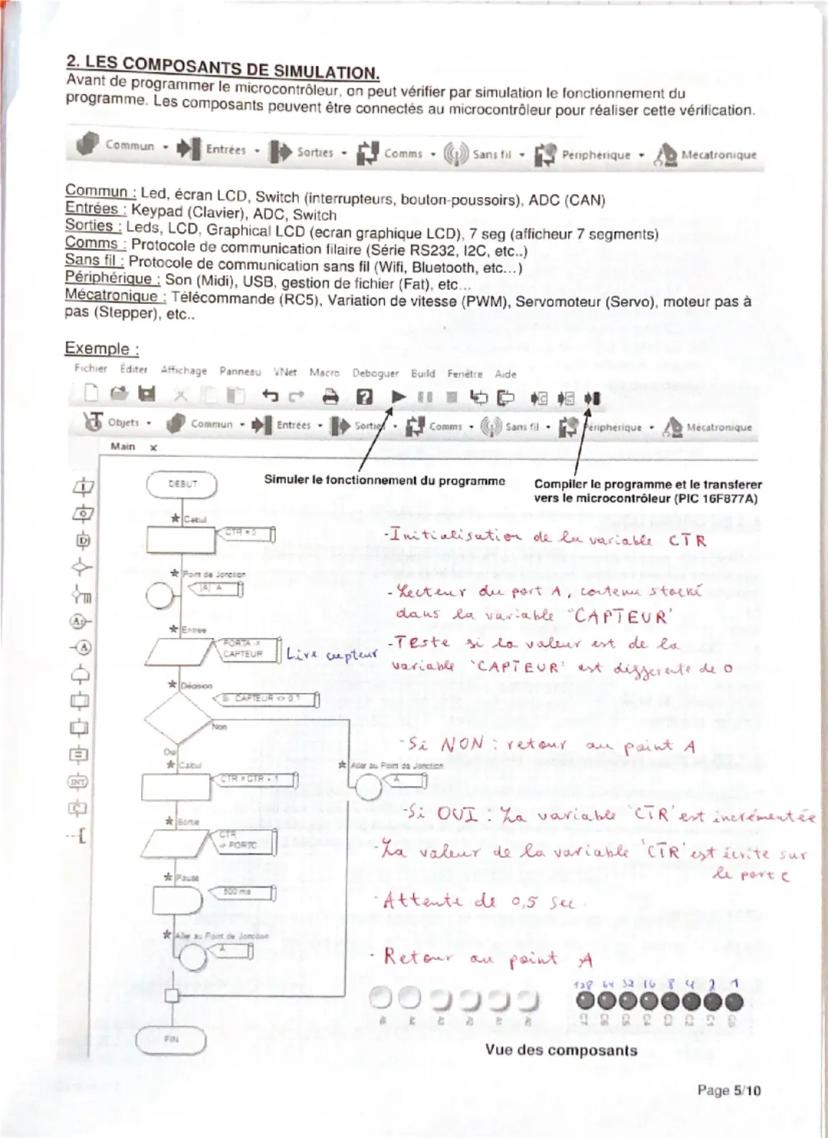 2. LES COMPOSANTS DE SIMULATION.
Avant de programmer le microcontrôleur, on peut vérifier par simulation le fonctionnement du
programme. Les composants peuvent être connectés au microcontrôleur pour réaliser cette vérification.
Commun Entrées Sorties Comms Sans fil Periphérique Mecatronique
Commun : Led, écran LCD, Switch (interrupteurs, bouton-poussoirs), ADC (CAN)
Entrées : Keypad (Clavier), ADC, Switch
Sorties : Leds, LCD, Graphical LCD (ecran graphique LCD), 7 seg (afficheur 7 segments)
Comms : Protocole de communication filaire (Série RS232, I2C, etc..)
Sans fil : Protocole de communication sans fil (Wifi, Bluetooth, etc...)
Périphérique : Son (Midi), USB, gestion de fichier (Fat), etc...
Mécatronique : Télécommande (RC5), Variation de vitesse (PWM), Servomoteur (Servo), moteur pas à
pas (Stepper), etc..
Exemple :
Fichier Éditer Affichage Panneau VNet Macro Deboguer Build Fenêtre Aide
Objets Commun Entrées Sorties Comms Sans fil Périphérique Mecatronique
Main x
Simuler le fonctionnement du programme
Compiler le programme et le transferer
vers le microcontrôleur (PIC 16F877A)
DEBUT
Calcul
CTR = 0
- Initialisation de la variable CTR
Point de Jonction
A
- Lecteur du port A, contenu stocké
dans la variable "CAPTEUR"
Entrée
PORTA ->
CAPTEUR
Lire capteur
- Teste si la valeur est de la
variable 'CAPTEUR' est differente de 0
Décision
Si CAPTEUR <> 0 ?
Non
Oui
- Si NON : retour au point A
Calcul
CTR = CTR + 1
Aller au Point de Jonction
A
- Si OUI : La variable 'CTR' est incrémentée
Sortie
CTR
-> PORTC
- La valeur de la variable 'CTR' est écrite sur
le port C
Pause
500 ms
- Attente de 0,5 sec.
Aller au Point de Jonction
A
- Retour au point A
128 64 32 16 8 4 2 1
C7 C6 C5 C4 C3 C2 C1 C0
FIN
Vue des composants
Page 5/10